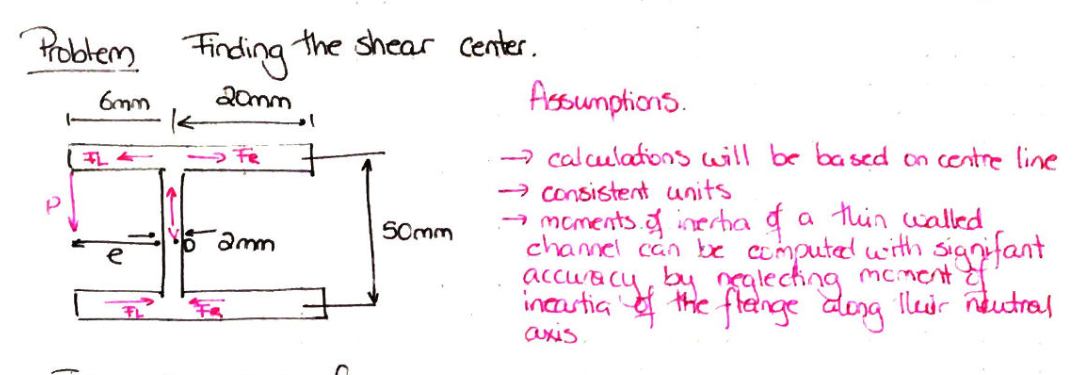 Problem Finding the shear center.
6mm 20mm
Assumptions.
FL FR
→ calculations will be based on centre line
P
→ consistent units
→ moments of inertia of a thin walled
V 2mm 50mm
channel can be computed with signifant
e
accuracy by neglecting moment of
FL FR
ineartia of the flange along their neutral
axis.